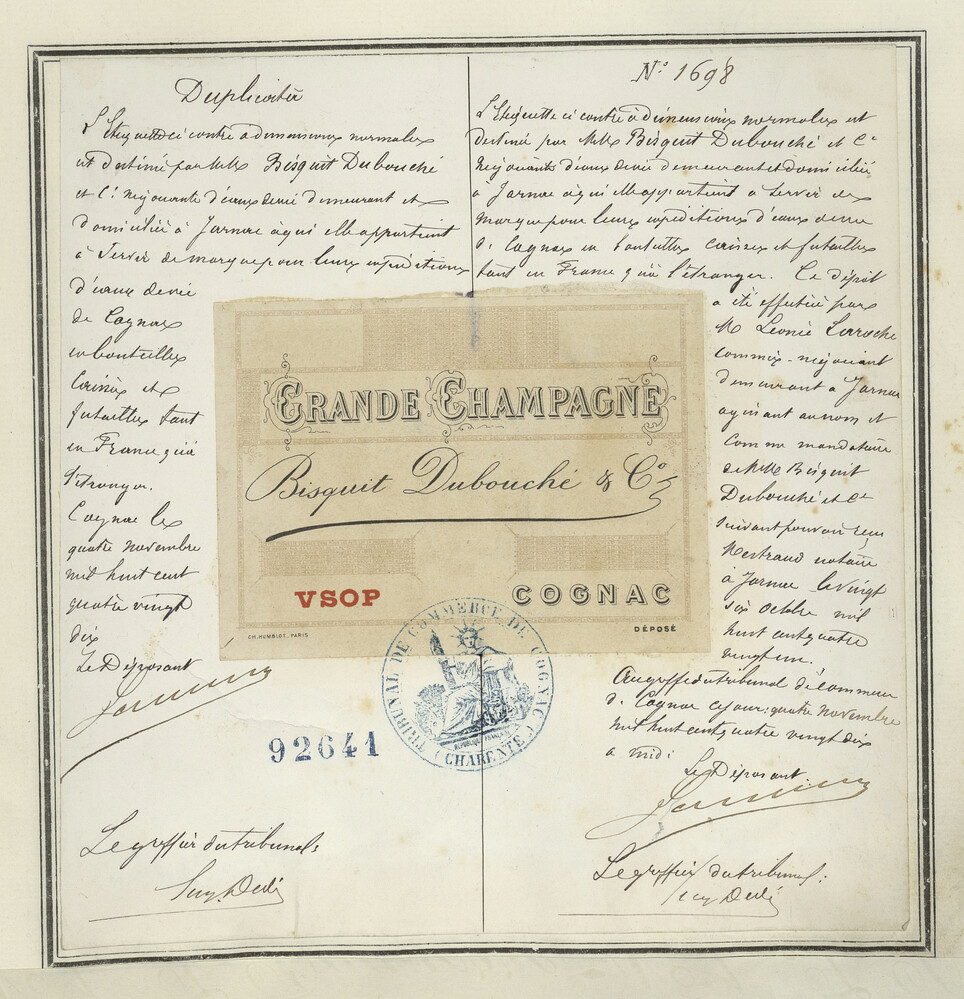 Duplicata
L'Etiquette ci contre a dimensions normales
est destiné par MM Bisquit Dubouché
et Cie Négociants d'eaux de vie demeurant et
domiciliés à Jarnac à qui elle appartient
à Servir de marque pour leurs expéditions
d'eaux de vie
de Cognac
en bouteilles
Caisses et
futailles tant
en France qu'à
l'étranger.
Cognac le
quatre novembre
mil huit cent
quatre vingt
dix
Le Déposant
92641
Le greffier du tribunal:
N° 1698
L'Etiquette ci contre à dimensions normales est
destiné par MM Bisquit Dubouché et Cie
Négociants d'eaux de vie demeurant et domiciliés
à Jarnac à qui elle appartient à servir de
marque pour leurs expéditions d'eaux de vie
de Cognac en bouteilles caisses et futailles
tant en France qu'à l'étranger. Ce dépôt
a été effectué par
M Léonce Larroche
commis-négociant
demeurant à Jarnac
agissant au nom et
comme mandataire
de MM Bisquit
Dubouché et Cie
suivant pouvoir reçu
notaire
à Jarnac le vingt
six octobre mil
huit cent quatre
vingt
Au greffe du tribunal de commerce
de Cognac ce jour: quatre novembre
mil huit cent quatre vingt dix
a midi:
Le Déposant
Le greffier du tribunal:
GRANDE CHAMPAGNE
Bisquit Dubouché & Co
VSOP
COGNAC
CH. HUMBLOT, PARIS
DÉPOSÉ
TRIBUNAL DE COMMERCE DE COGNAC
RÉPUBLIQUE FRANÇAISE
(CHARENTE)